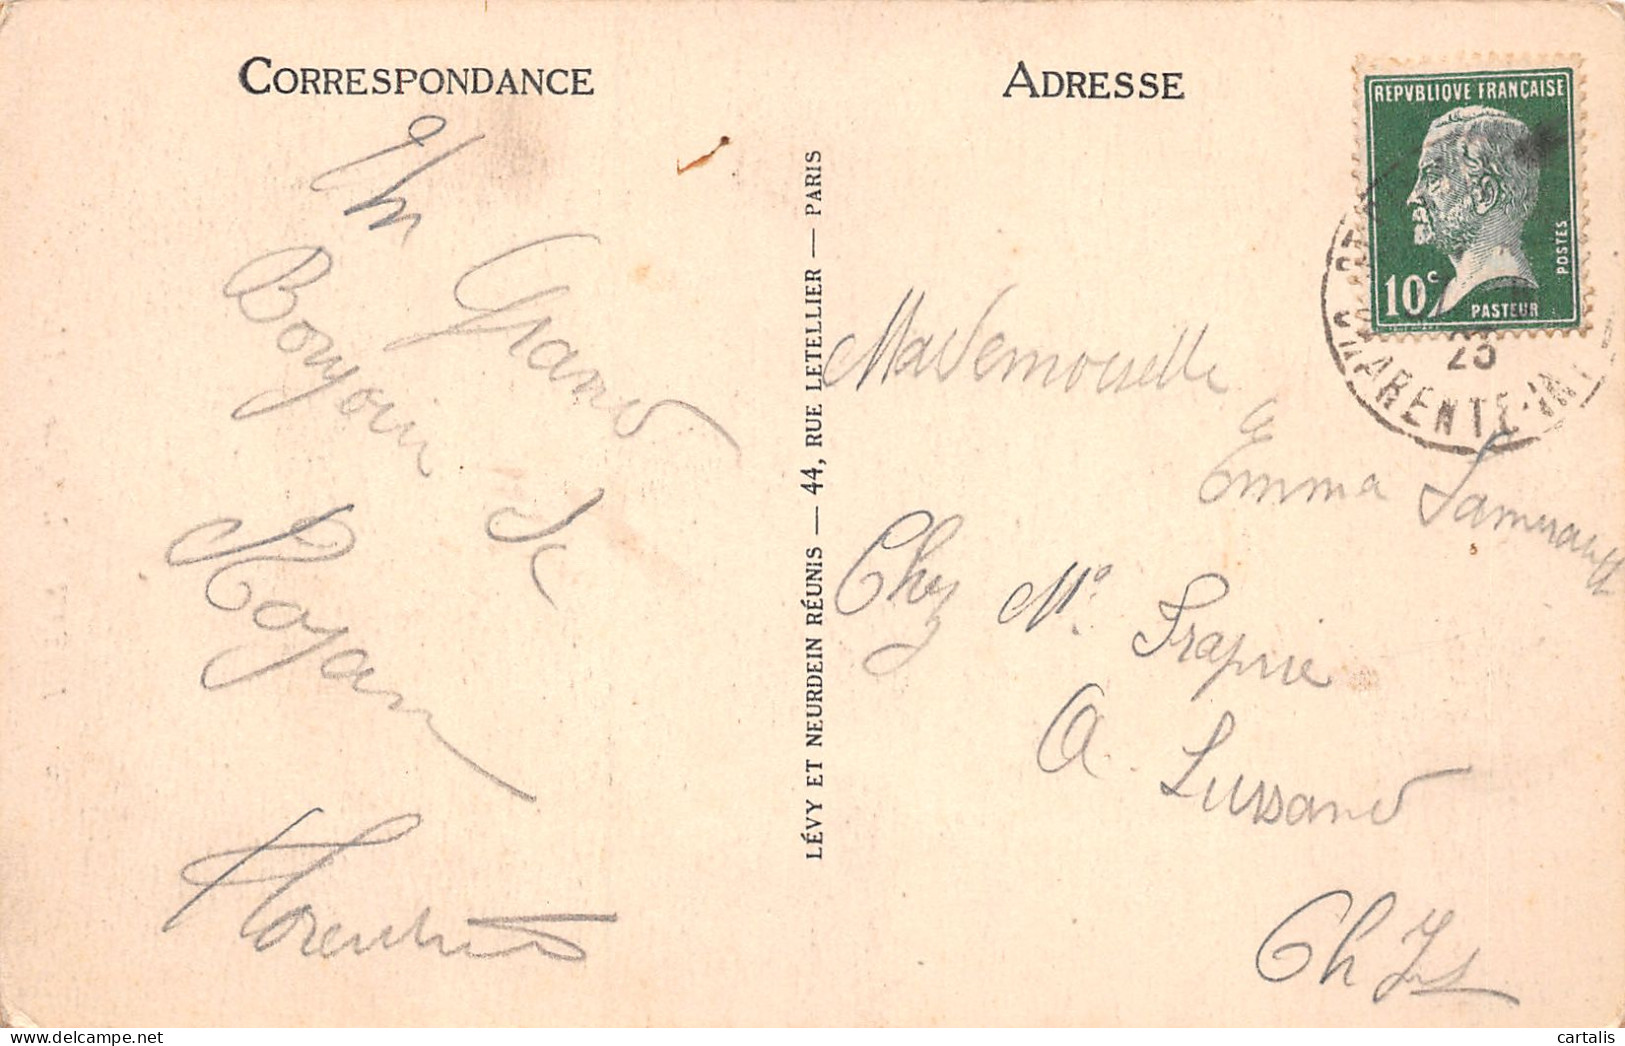 CORRESPONDANCE
Un Grand
Bonjour de
Royan
Florentine
LÉVY ET NEURDEIN RÉUNIS — 44, RUE LETELLIER — PARIS
ADRESSE
REPVBLIQVE FRANÇAISE
POSTES
10c
PASTEUR
25
CHARENTE-INF
Mademoiselle
Emma
Chez Mr
A Lussand
Ch Is
cartalis